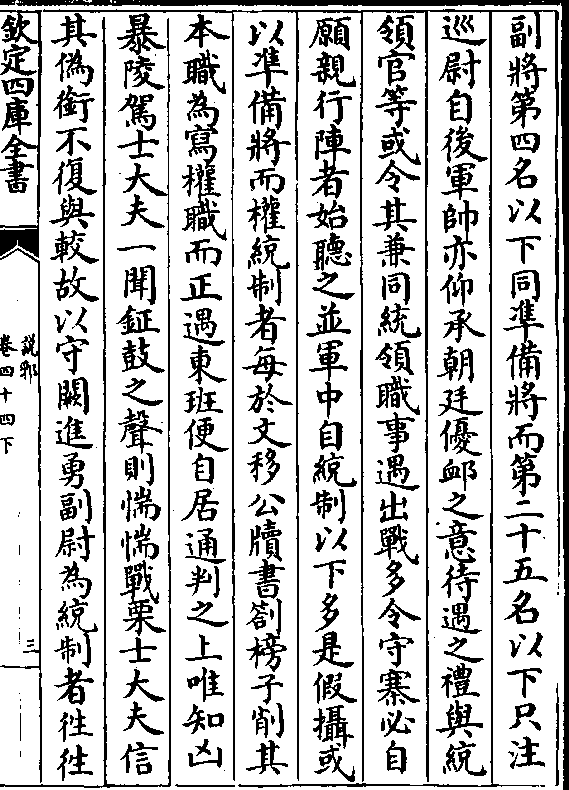 副將第四名以下同準備將而第二十五名以下只注
巡尉自後軍帥亦仰承朝廷優衈之意待遇之禮與統
領官等或令其兼同統領職事遇出戰多令守寨必自
願親行陣者始聽之並軍中自統制以下多是假攝或
以準備將而權統制者每於文移公牘書劄榜子削其
本職為寫權職而正遇東班便自居通判之上唯知凶
暴陵駕士大夫一聞鉦鼓之聲則惴惴戰栗士大夫信
其偽銜不復與較故以守闕進勇副尉為統制者徃徃
欽定四庫全書
說郛
卷四十四下
三